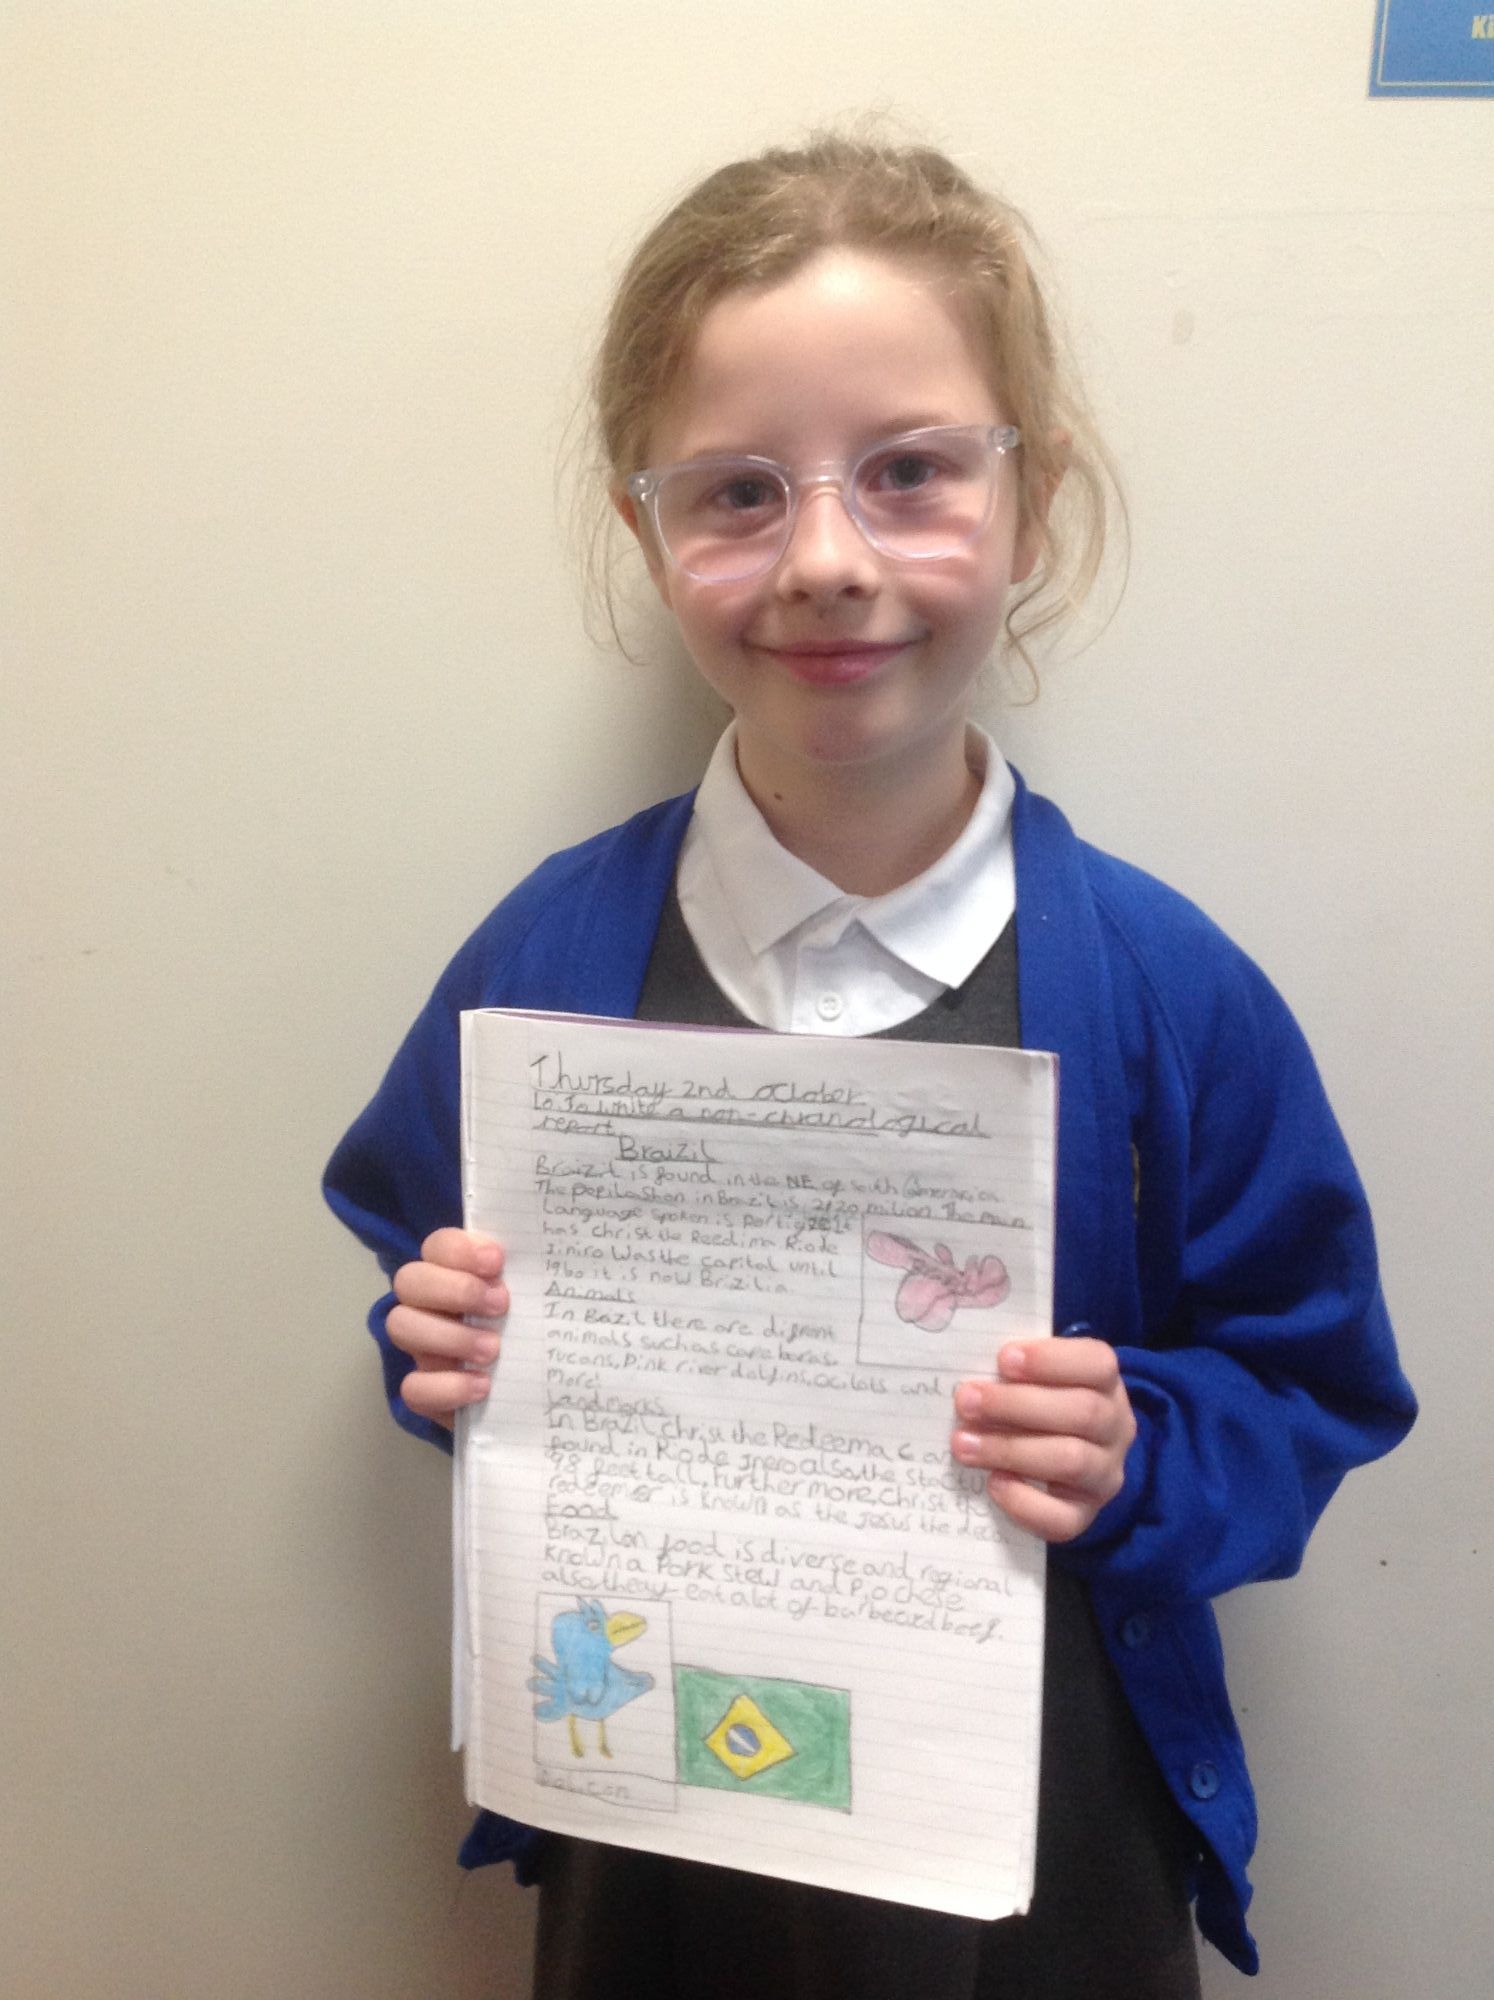 Ki
Thursday 2nd October
Lo. To write a non-chranological
report
Braizil
Braizil is found in the NE of south Amerarica
The popilashon in Brazil is, 2120 milion. The main
language spoken is
has christ the Reedima Riode
Jiniro was the capital until
1960 it is now Brizilia.
Animals
In Bazil there are difrent
animals such as capebaras,
Tucans, Pink river dolfins, ocilots and
More!
Landmarks
In Brazil, Christ the Redeema
found in Riode Jnero also, the
98 feet tall, Further more, Christ
redeemer is known as the Jesus the
Food
Brazilan food is diverse and regional
known a Pork stew and
also they eat a lot of barbecued beef.